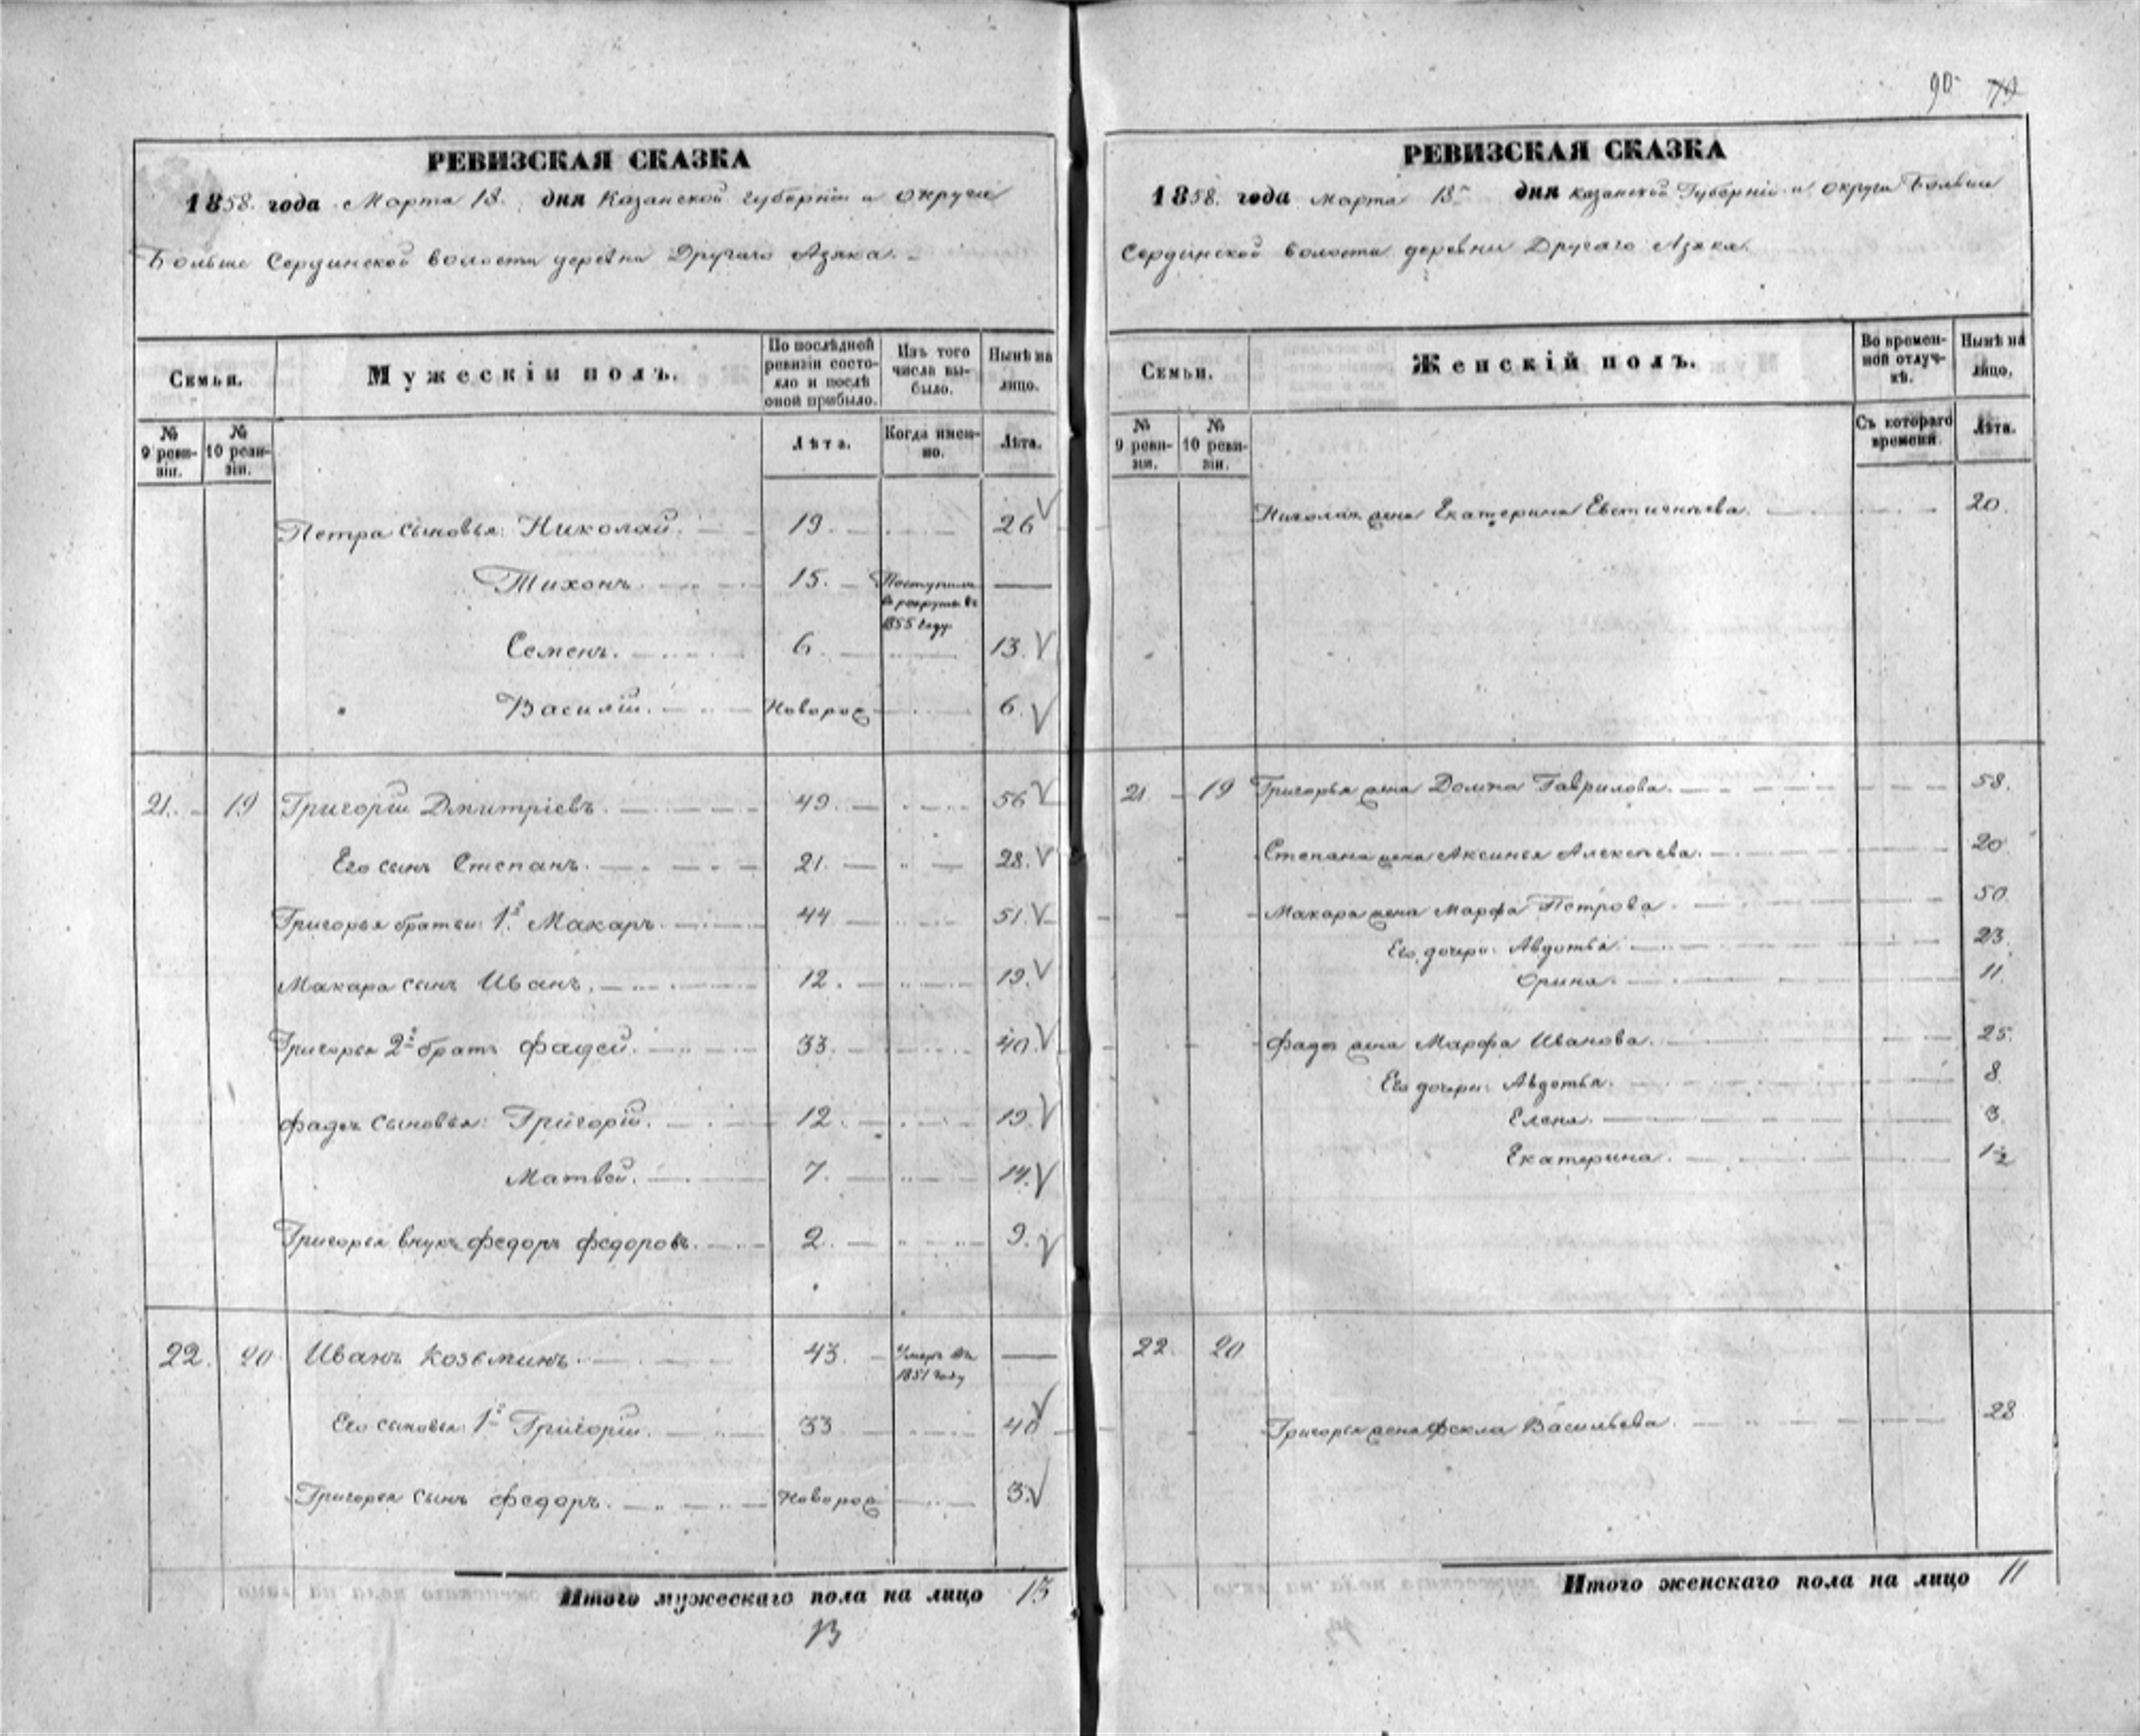 90 79
РЕВИЗСКАЯ СКАЗКА
1858. года Марта 18. дня Казанской губернии и округа
Больше Сердинской волости деревни Другаго Азяка.
Семьи.
Мужескій полъ.
По послѣдней ревизіи состояло и послѣ оной прибыло.
Изъ того числа выбыло.
Нынѣ на лицо.
№ 9 ревизіи.
№ 10 ревизіи.
Лѣта.
Когда именно.
Лѣта.
Петра сыновья: Николай. 19. 26
Тихонъ. 15. Поступилъ въ рекруты въ 1855 году
Семенъ. 6. 13.
Василій. Новорож 6.
21. 19 Григорій Дмитріевъ. 49. 56
Его сынъ Степанъ. 21. 28.
Григорья братья: 1й Макаръ. 44 51.
Макара сынъ Иванъ. 12. 19.
Григорья 2й братъ Фадей. 33. 40.
Фадея сыновья: Григорій. 12. 19.
Матвей. 7. 14.
Григорья внукъ Федоръ Федоровъ. 2. 9.
22. 20 Иванъ Козьминъ. 43. Умеръ въ 1851 году
Его сыновья: 1й Григорій. 33 40
Григорья сынъ Федоръ. Новорож 3.
Итого мужескаго пола на лицо 13
13
РЕВИЗСКАЯ СКАЗКА
1858. года марта 18 дня казанской Губерніи и округа Больше
Сердинской волости деревни Другаго Азяка.
Семьи.
Женскій полъ.
Во временной отлучкѣ.
Нынѣ на лицо,
№ 9 ревизіи.
№ 10 ревизіи.
Съ котораго времени.
Лѣта.
Николая жена Екатерина Евстигнѣева. 20.
21. 19 Григорья жена Домна Гаврилова. 58.
Степана жена Аксинья Алексѣева. 20
Макара жена Марфа Петрова. 50.
Его дочери: Авдотья. 23.
Орина. 11.
Фадея жена Марфа Иванова. 25.
Его дочери: Авдотья. 8.
Елена. 3.
Екатерина. 1½
22. 20.
Григорья жена Фекла Васильева. 28
Итого женскаго пола на лицо 11